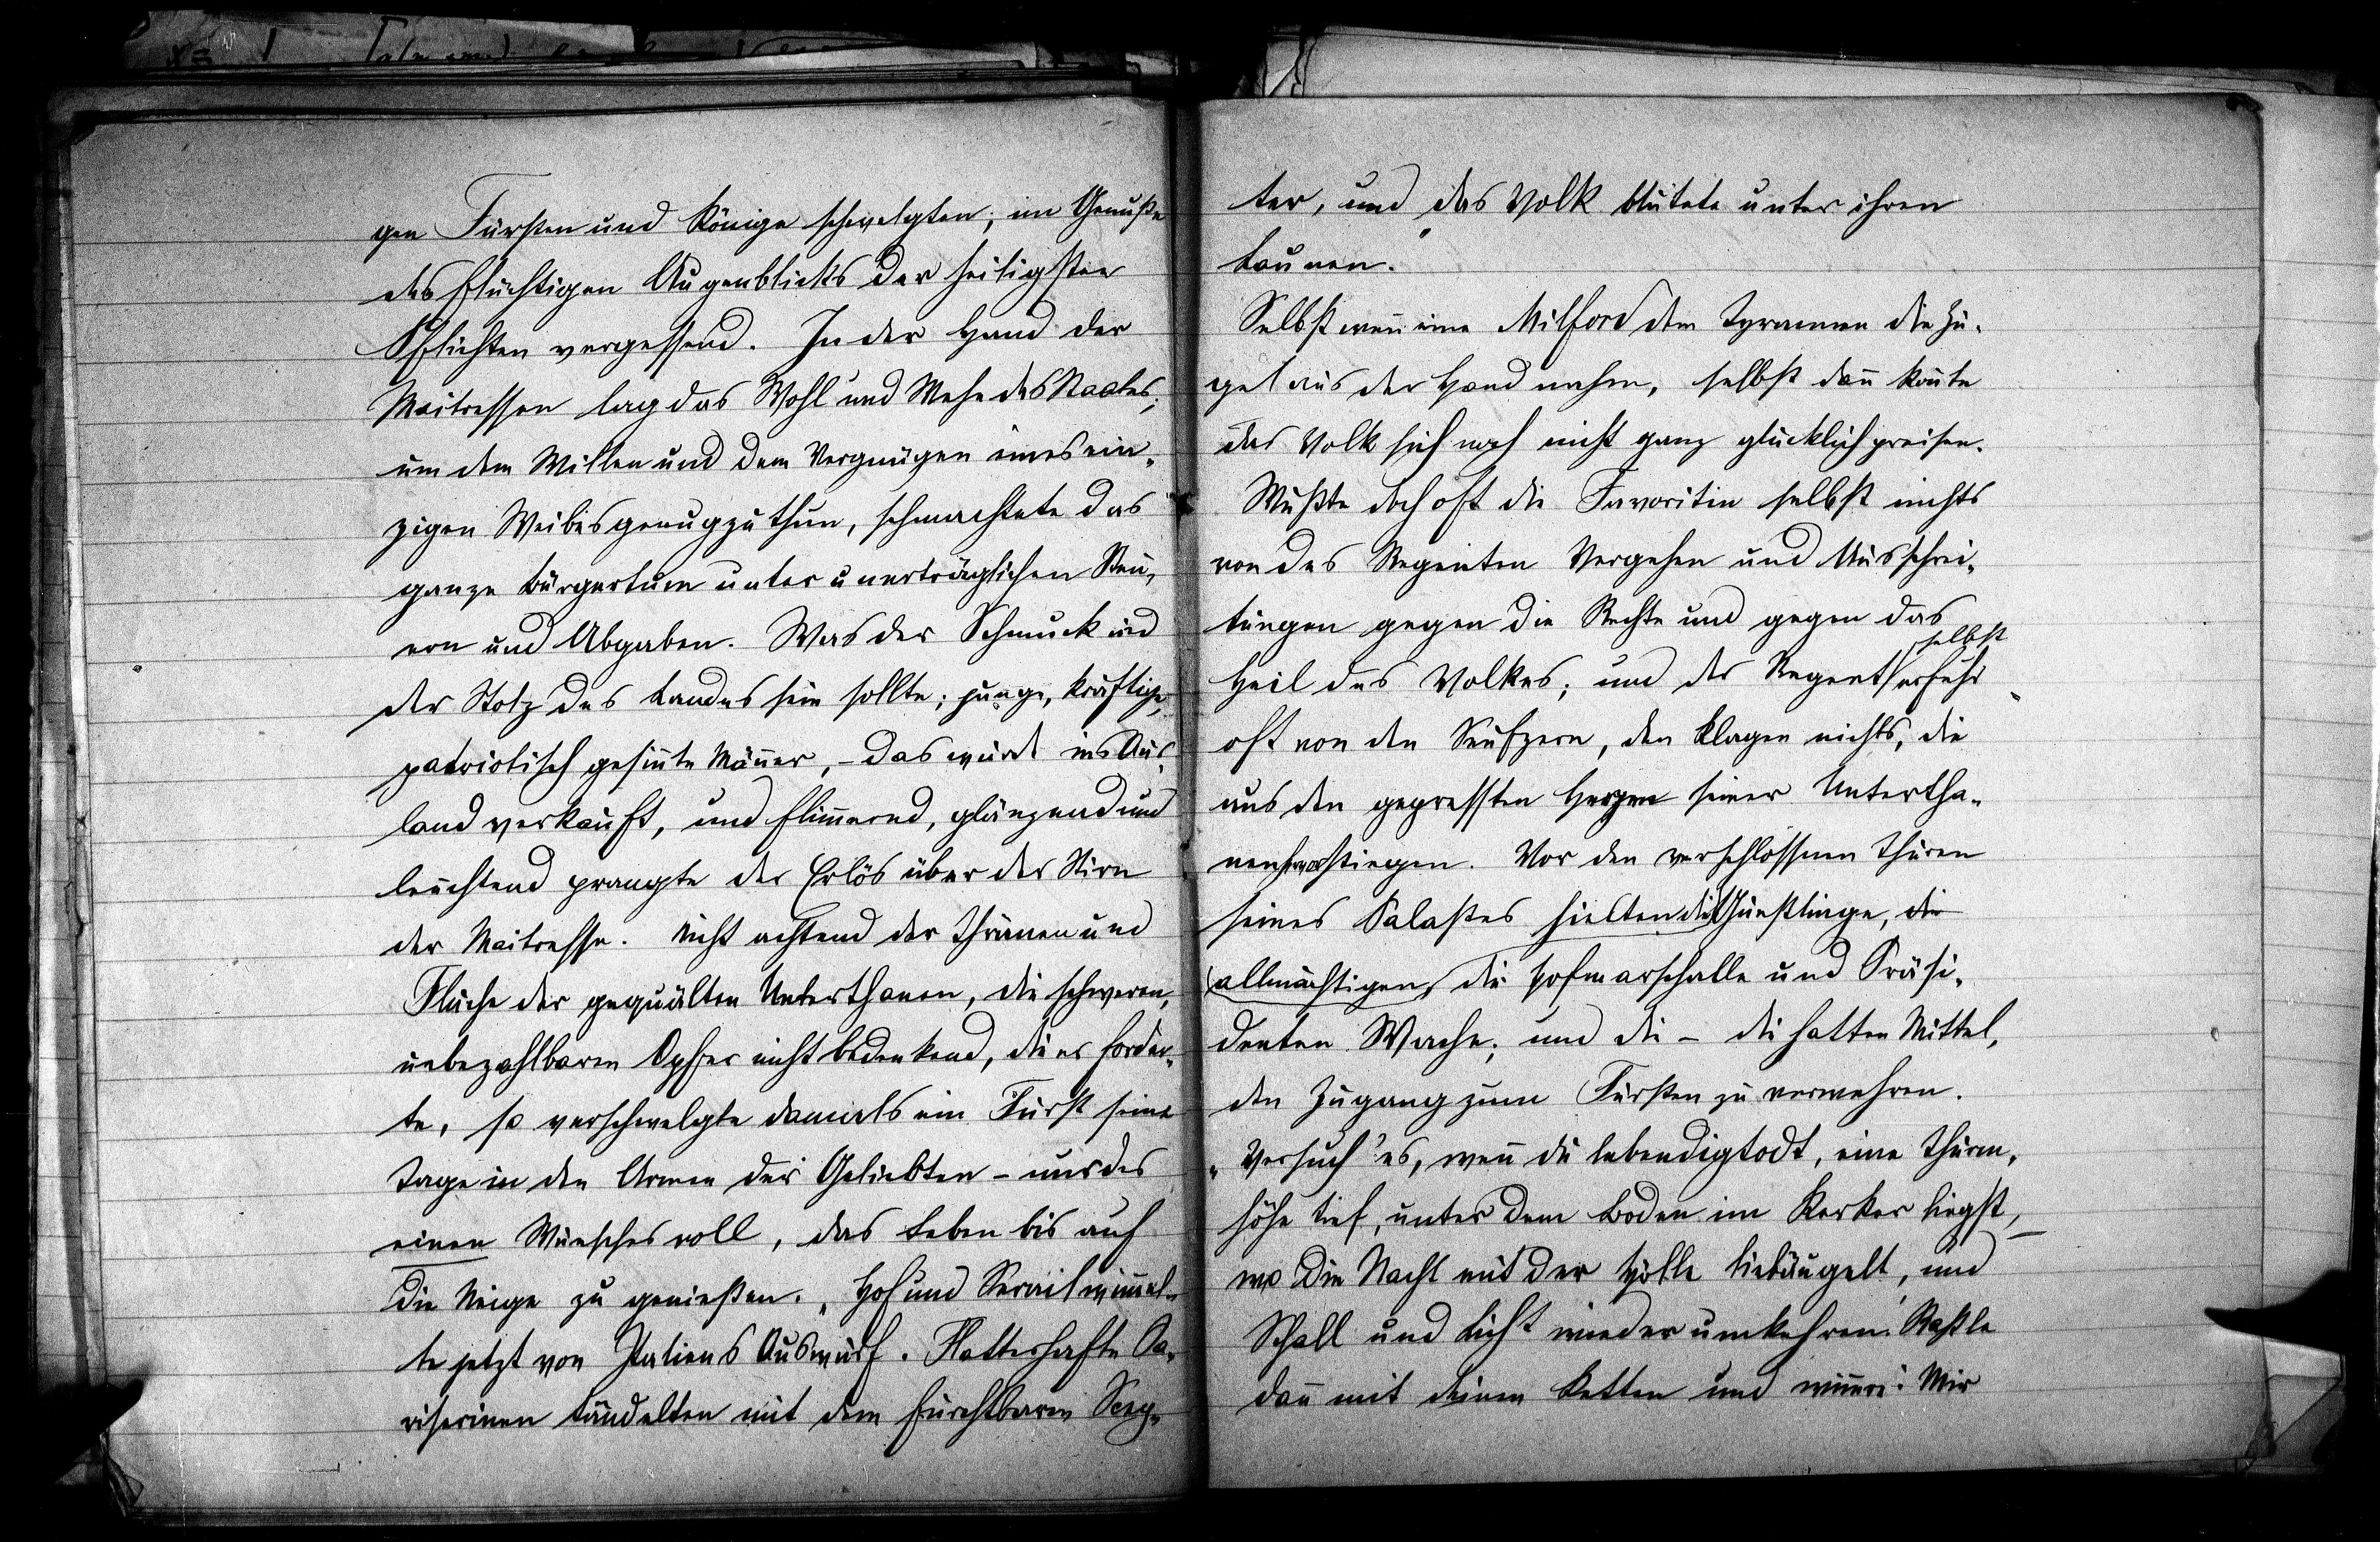 gen Fürsten und Könige schwelgten; im Genuße
des flüchtigen Augenblicks der heiligsten
Pflichten vergessend. In der Hand der
Maitressen lag das Wohl und Wehe des Staates;
um dem Willen und dem Vergnügen eines ein-
zigen Weibes genugzuthun, schmachtete das
ganze Bürgertum unter unerträglichen Steu-
ern und Abgaben. Was der Schmuck und
der Stolz des Landes sein sollte; junge, kräftige,
patriotisch gesin̄te Män̄er, – das wurde ins Aus-
land verkauft, und flim̄ernd, glänzend und
leuchtend prangte der Erlös über der Stirn
der Maitresse. Nicht achtend der Thränen und
Flüche der gequälten Unterthanen, die schweren,
unbezahlbaren Opfer nicht bedenkend, die es forder-
te, so verschwelgte damals ein Fürst seine
Tage in den Armen der Geliebten – nur des
einen Wunsches voll, das Leben bis auf
die Neige zu genießen. „Hof und Serail wim̄el-
te jetzt von Italiens Auswurf. Flatterhafte Pa-
riserinen tändelten mit dem furchtbaren Scep-
ter, und das Volk blutete unter ihren
Launen.“
Selbst wen̄ eine Milford dem Tyrannen die Zü-
gel aus der Hand nahm, selbst dan̄ kon̄te
das Volk sich noch nicht ganz glücklich preisen.
Wußte doch oft die Favoritin selbst nichts
von des Regenten Vergehen und Ausschrei-
tungen gegen die Rechte und gegen das
selbst
Heil des Volkes; und der Regent erfuhr
oft von den Seufzern, den Klagen nichts, die
aus den gepressten Herzen seiner Untertha-
nen hervorstiegen. Vor den verschlossenen Thüren
seines Palastes hielten die Günstlinge, die
allmächtigen, die Hofmarschalle und Präsi-
denten Wache; und die – die hatten Mittel,
den Zugang zum Fürsten zu verwehren.
„Versuch' es, wen̄ du lebendigtodt, eine Thurm-
höhe tief, unter dem Boden im Kerker liegst,
wo die Nacht mit der Hölle liebäugelt, und
Schall und Licht wieder umkehren. Raßle
dan̄ mit deinen Ketten und wim̄re: Mir